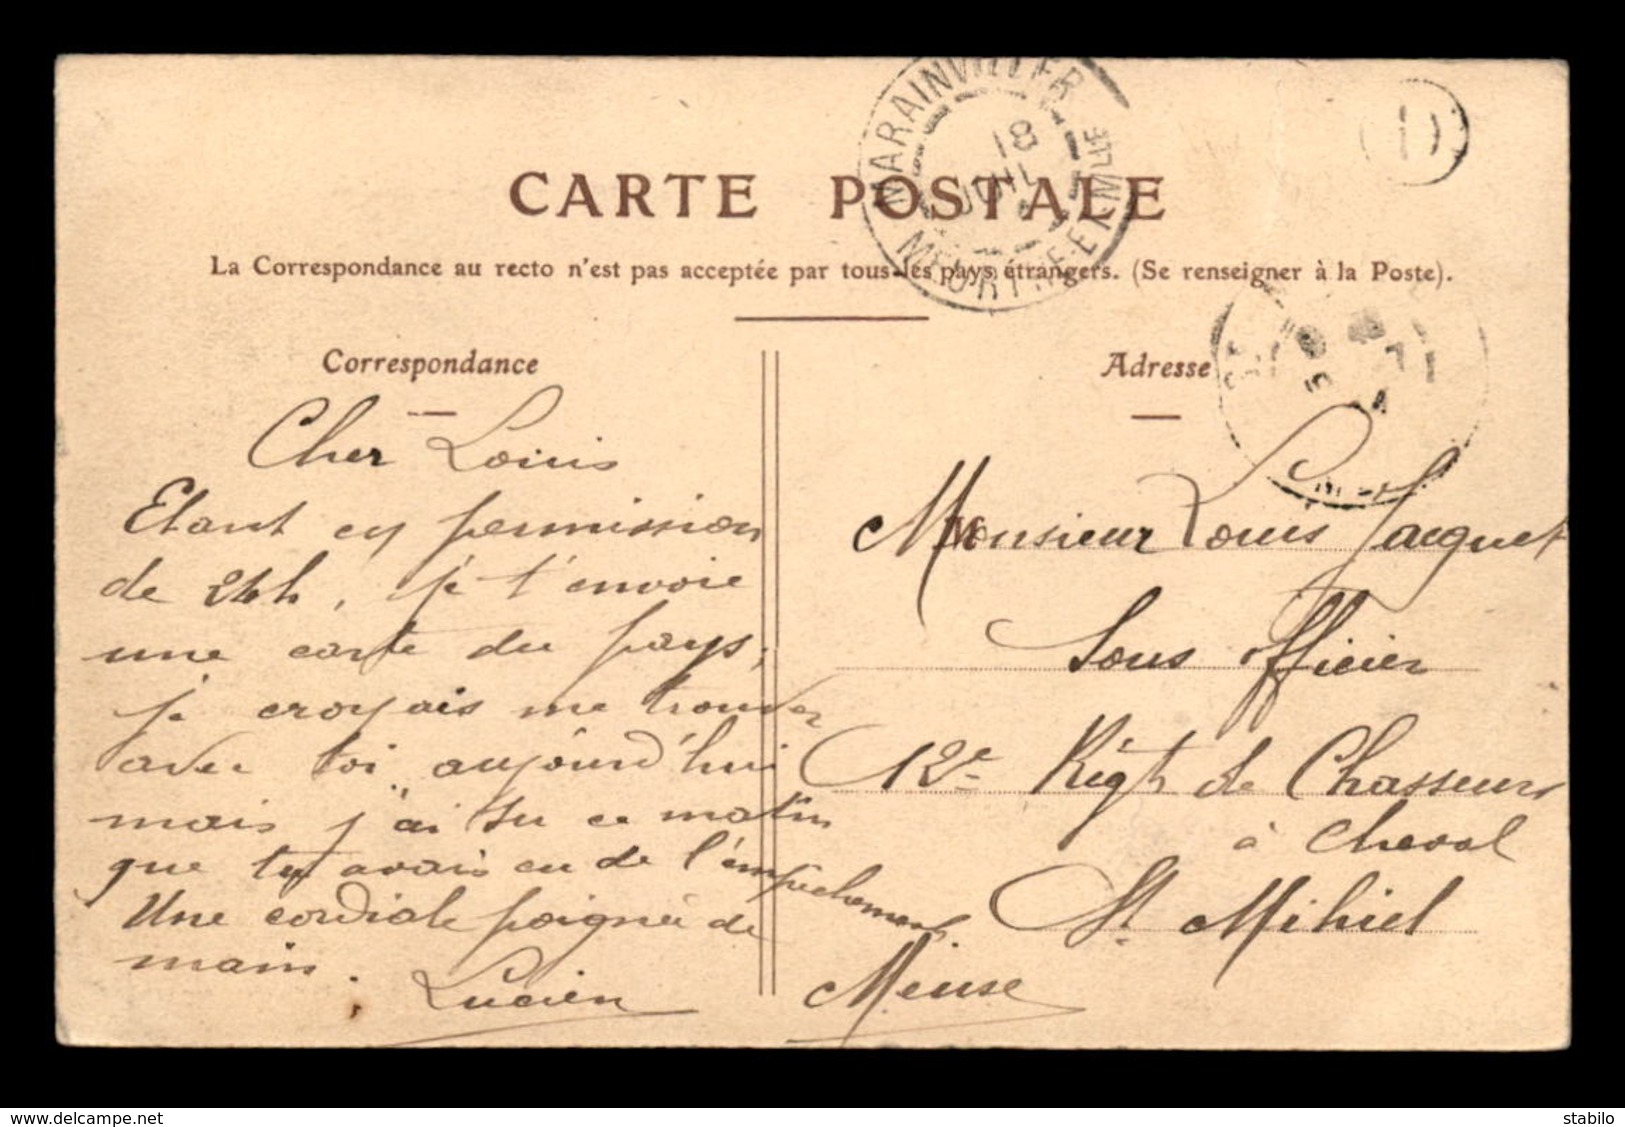 MARAINVILLER
18
JUIL
MEURTHE-ET-MLLE
D
CARTE POSTALE
La Correspondance au recto n'est pas acceptée par tous les pays étrangers. (Se renseigner à la Poste).
Correspondance
Cher Louis
Etant en permission
de 24h, je t'envoie
une carte du pays;
je croyais me trouver
avec toi aujourd'hui
mais j'ai su ce matin
que tu avais eu de l'empêchement
Une cordiale poignée de
main.
Lucien
Adresse
Monsieur Louis Jacquet
Sous officier
12e Régt de Chasseurs
à cheval
St Mihiel
Meuse
https://www.delcampe.net
stabilo